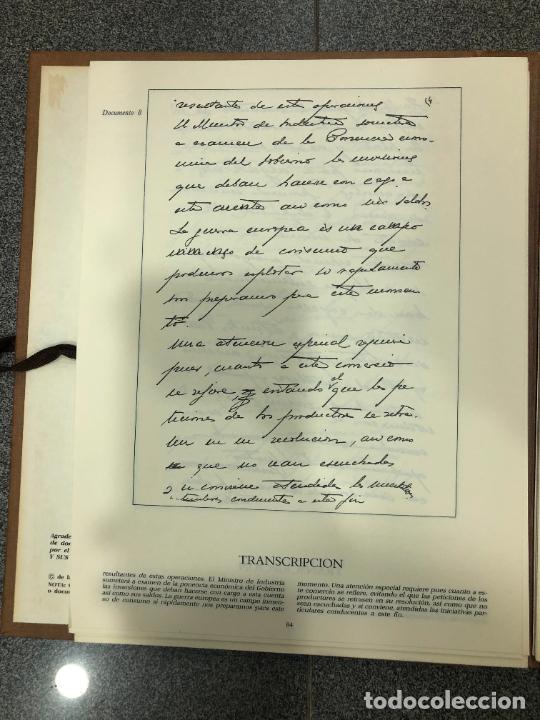 Documento 8
resultantes de estas operaciones
El Ministro de Industria someterá
a examen de la Ponencia econó-
mica del Gobierno las inversiones
que deban hacerse con cargo a
esta cuenta así como sus saldos
La guerra europea es un campo
inmenso de consumo que
podemos explotar si rapidamente
nos preparamos para este momen
to.
Una atencion especial requiere
pues, cuanto a este comercio
se refiere evitando el que las pe
ticiones de los productores se retra
sen en su resolucion, asi como
que no sean escuchadas
y si conviene atendidas las iniciativas
conducentes a este fin
Agrade
de do
por el
Y SUS
© de l
NOTA:
o docu
TRANSCRIPCION
resultantes de estas operaciones. El Ministro de Industria
someterá a examen de la ponencia económica del Gobierno
las inversiones que deban hacerse con cargo a esta cuenta
así como sus saldos. La guerra europea es un campo inmen-
so de consumo si rápidamente nos preparamos para este
momento. Una atención especial requiere pues cuanto a es-
te comercio se refiere, evitando el que las peticiones de los
productores se retrasen en su resolución, así como que no
sean escuchadas y si conviene, atendidas las iniciativas par-
ticulares conducentes a este fin.
64
todocoleccion